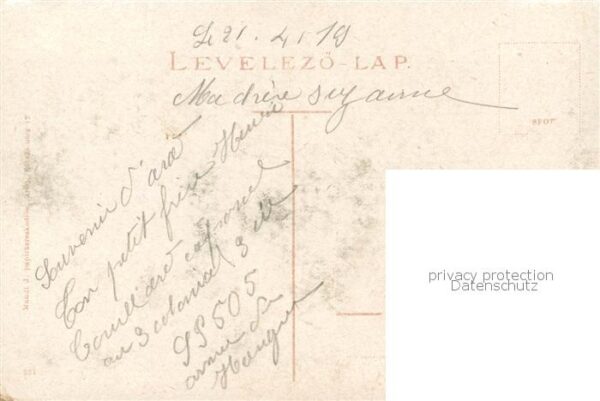 Le 21. 4. 19
LEVELEZŐ-LAP.
Ma chère Suzanne
Souvenir d'arad
Ton petit frère Henri
caporal
au 3 colonial 3
SP 505
armée de
Hongrie
privacy protection
Datenschutz